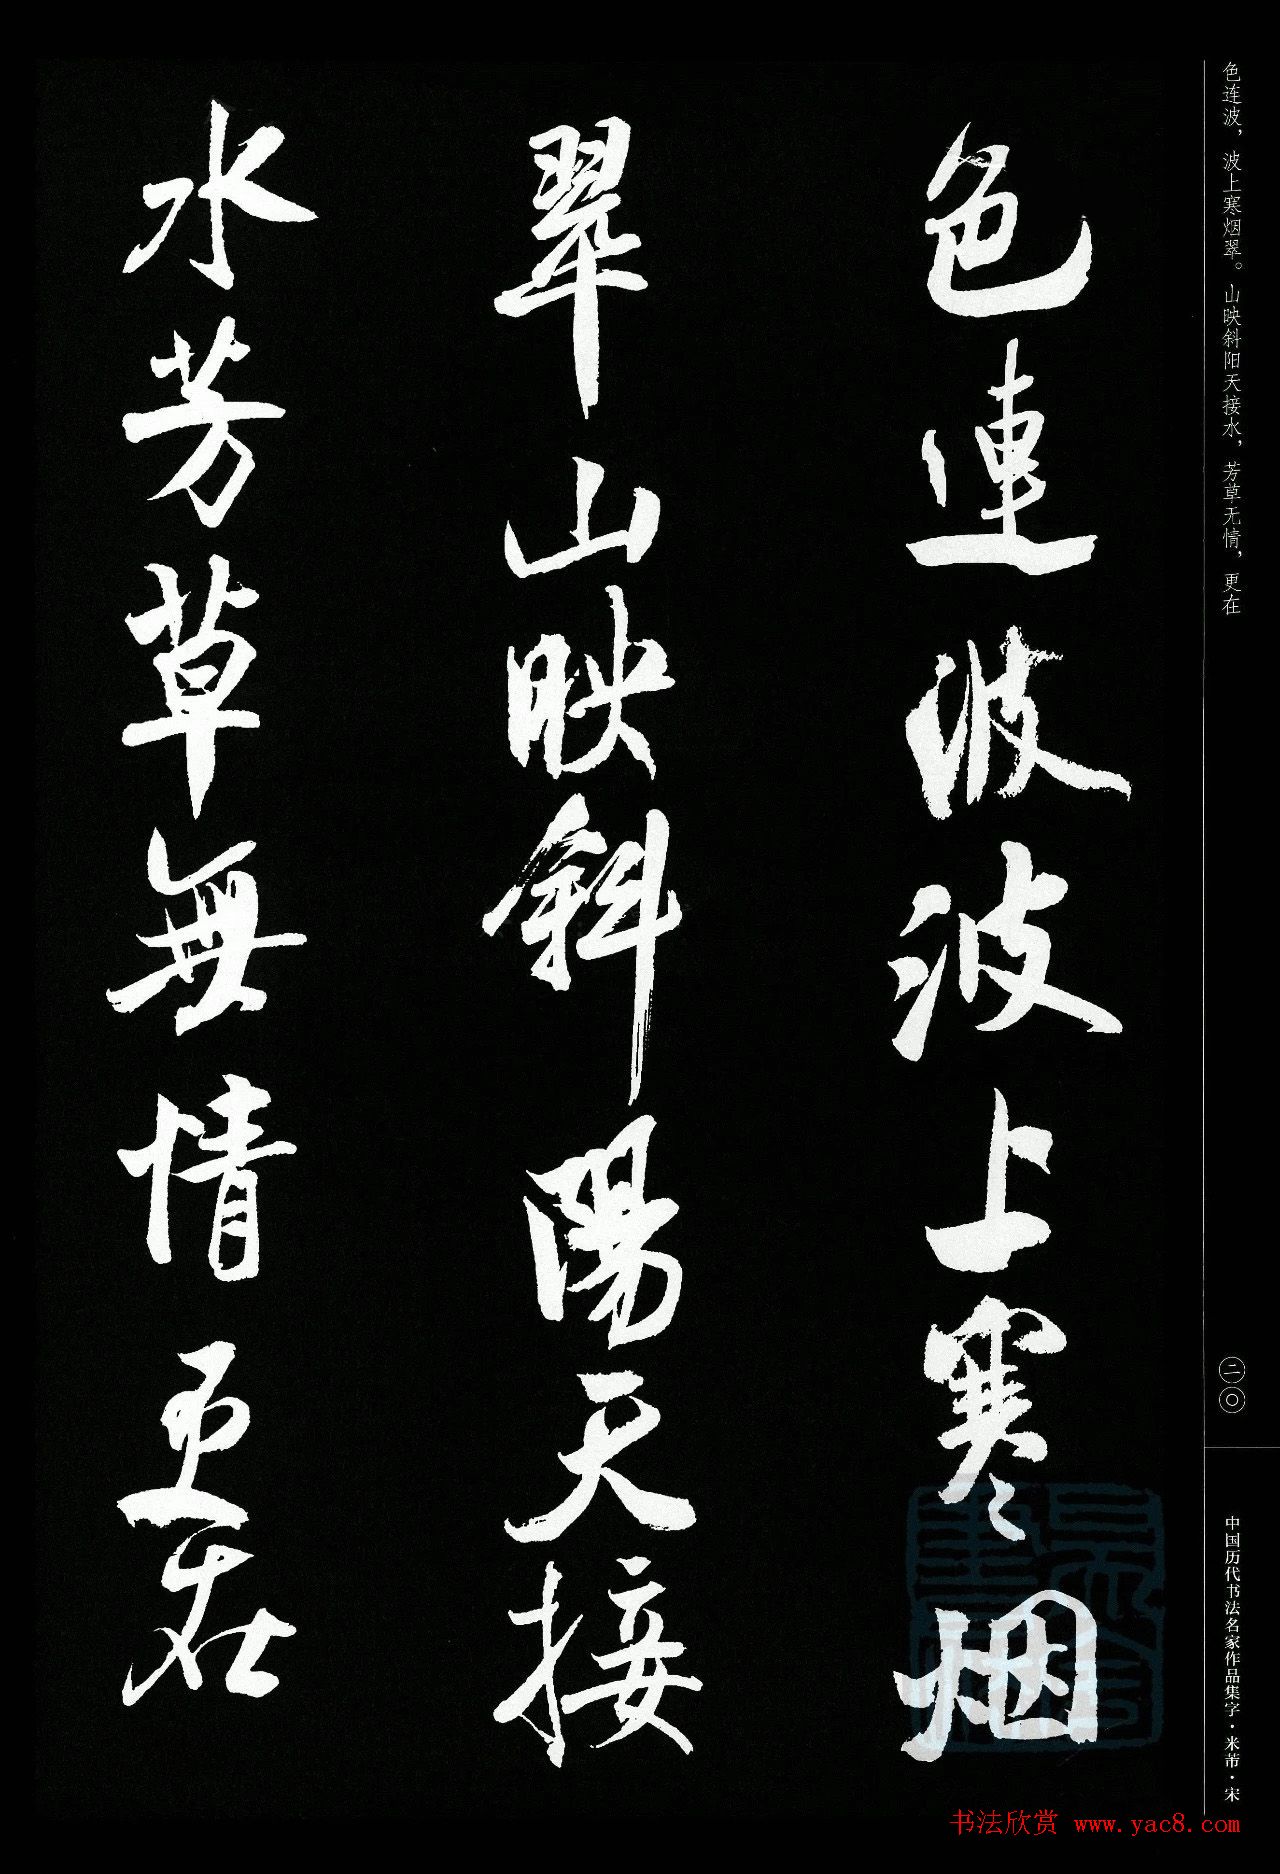 色连波，波上寒烟翠。山映斜阳天接水，芳草无情，更在
色連波波上寒烟
翠山映斜陽天接
水芳草無情更在
二〇
中国历代书法名家作品集字·米芾·宋
书法欣赏 www.yac8.com